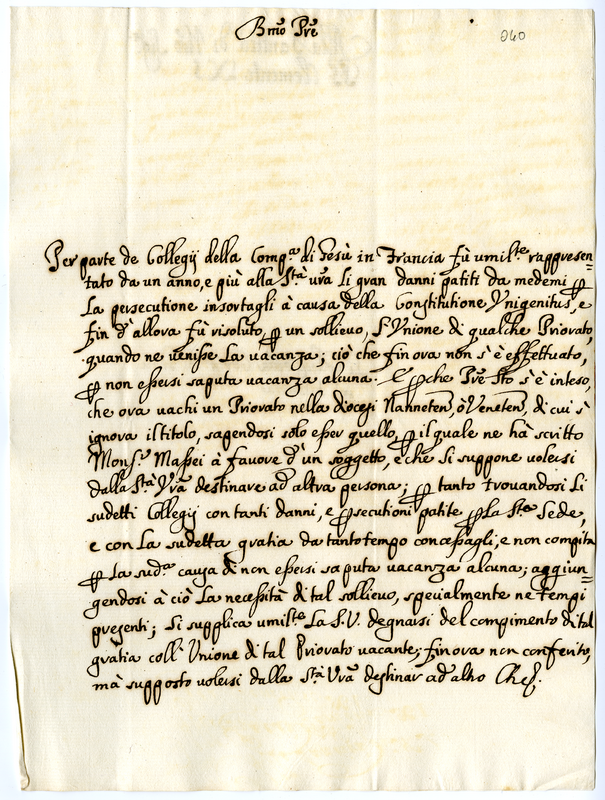 Bmo Pre
060
Per parte de Collegij della Compa. di Gesù in Francia fù umilte. rappresen=
tato da un anno, e più alla Stà. vrà li gran danni patiti da medemi p
La persecutione insortagli à causa della Constitutione Vnigenitus, e
fin d'allora fù risoluto, p un sollievo, l'Vnione di qualche Priorato,
quando ne venisse La vacanza; ciò che fin ora non s'è effettuato,
p non essersi saputa vacanza alcuna. E pche s'è inteso,
che ora vachi un Priorato nella diocesi Nahneten, ò Veneten, di cui s'
ignora il titolo, sapendosi solo esser quello, p il quale ne hà scritto
Monsr. Massei à favore d'un soggetto, e che si suppone volersi
dalla Stà. Vrà destinare ad altra persona; p tanto trovandosi Li
sudetti Collegij con tanti danni, e psecutioni patite p La Sta. Sede,
e con La sudetta gratia da tanto tempo concessagli, e non compita
p La suda. causa di non essersi saputa vacanza alcuna; aggiun=
gendosi à ciò La necessità di tal sollievo, specialmente ne tempi
presenti; si supplica umilte. La S.V. degnarsi del compimento di tal
gratia coll'Vnione di tal Priorato vacante; fin ora non conferito,
mà supposto volersi dalla Stà. Vrà destinar ad altro Che.